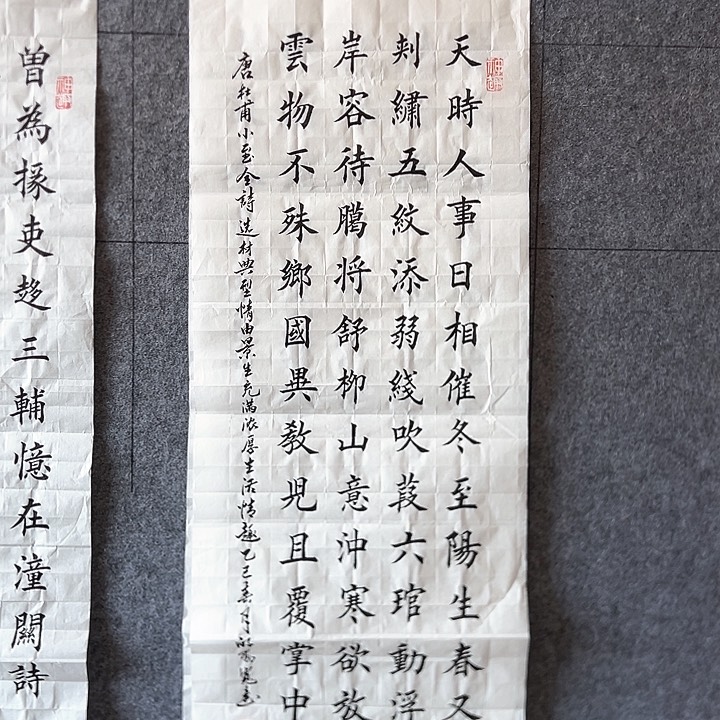 天時人事日相催冬至陽生春又
刺繡五紋添弱綫吹葭六琯動浮
岸容待臈将舒柳山意沖寒欲放
雲物不殊鄉國異教兒且覆掌中
唐杜甫小至全詩选材典型情由景生充满浓厚生活情趣乙巳春月
曾為掾吏趍三輔憶在潼關詩